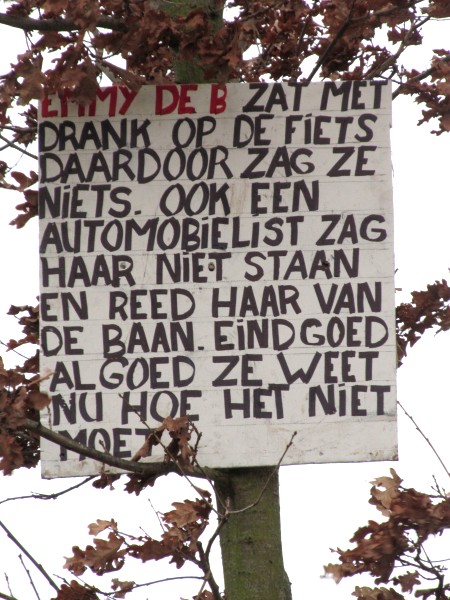 EMMY DE B ZAT MET
DRANK OP DE FIETS
DAARDOOR ZAG ZE
NIETS. OOK EEN
AUTOMOBIELIST ZAG
HAAR NIET STAAN
EN REED HAAR VAN
DE BAAN. EINDGOED
ALGOED ZE WEET
NU HOE HET NIET
MOET